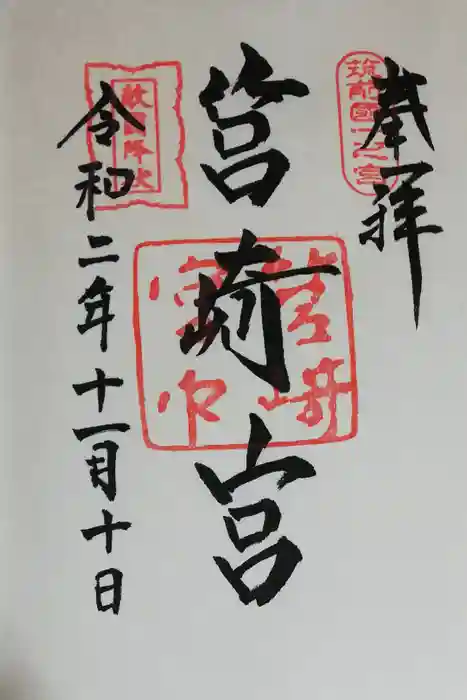 奉拝
筑前國一之宮
筥崎宮
敵國降伏
令和二年十一月十日